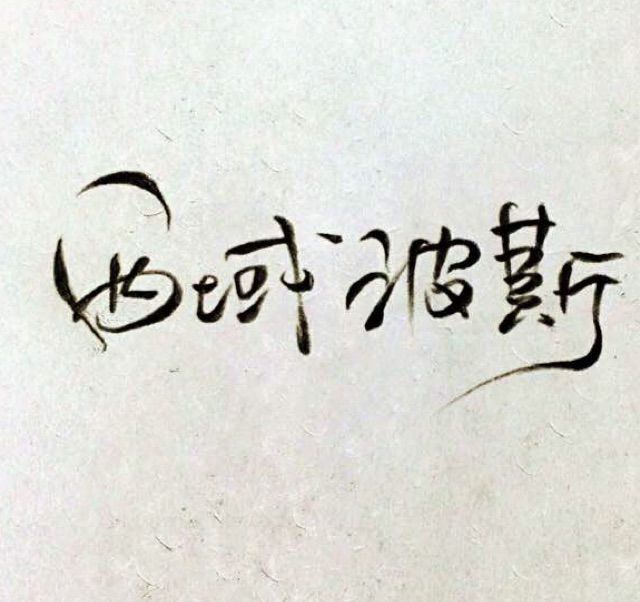 西域波斯